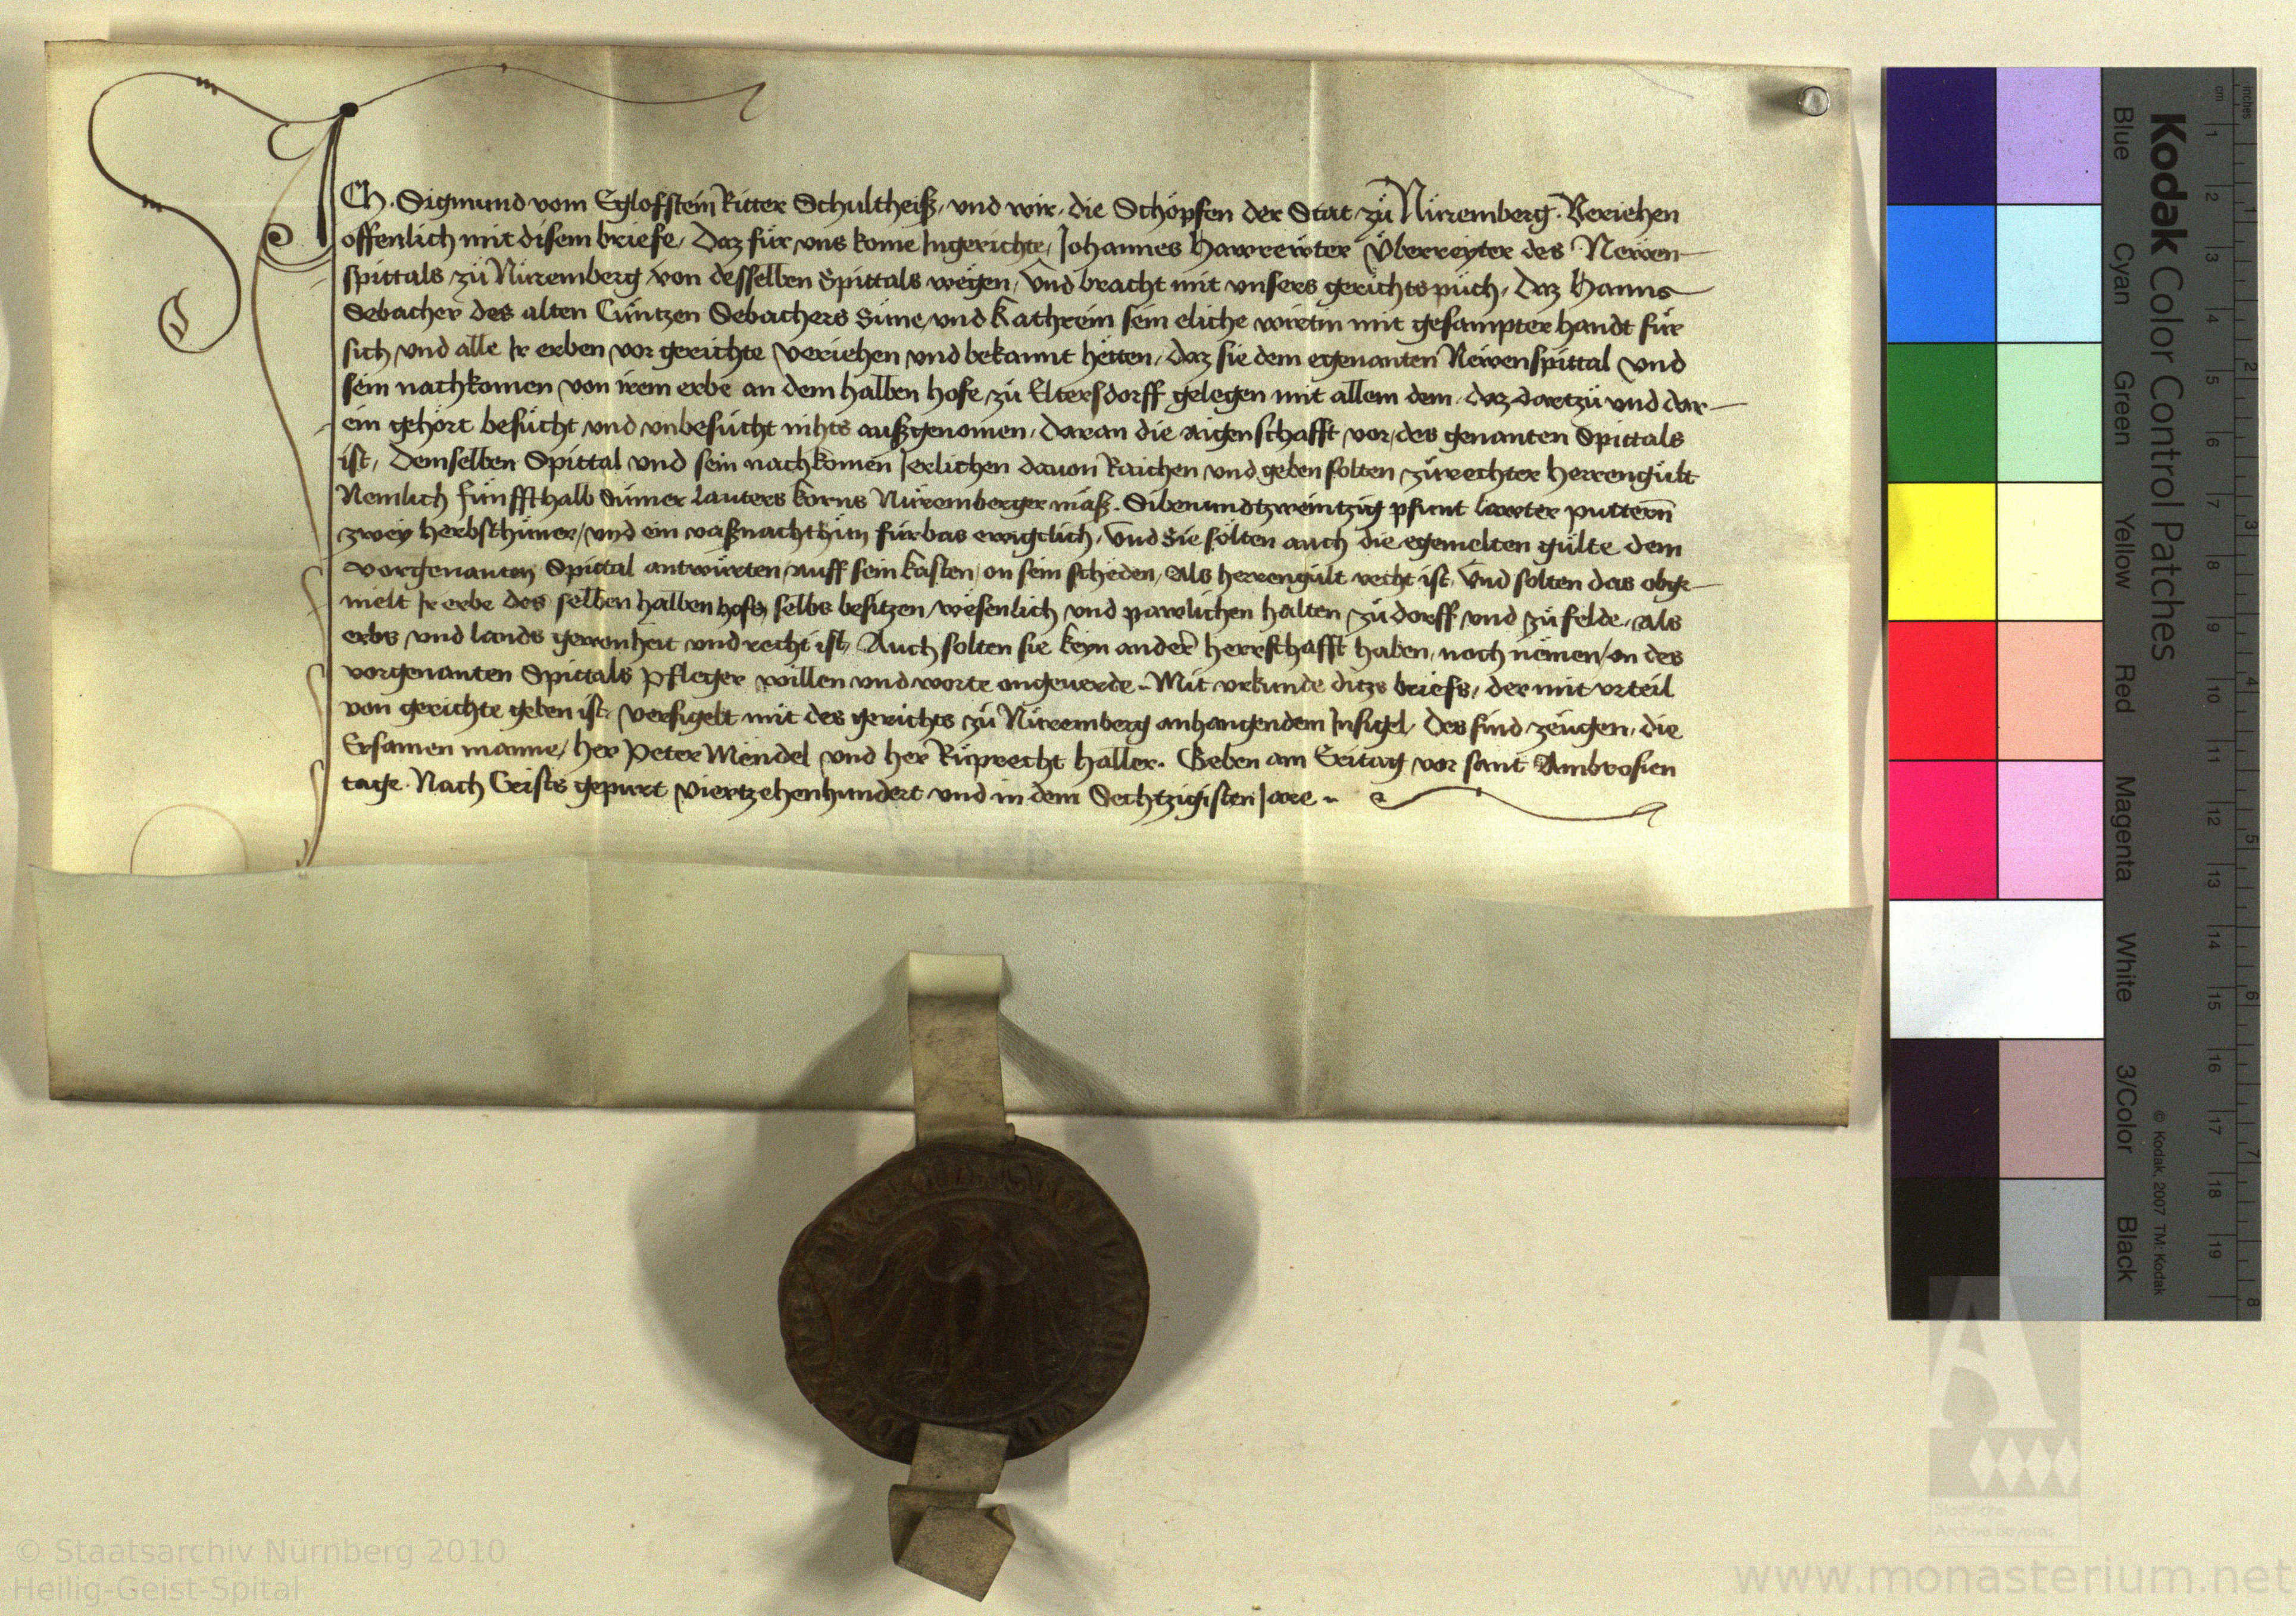 ICh Sigmund vom Eglofstein Ritter Schultheiß, und wir, die Schöpfen der Stat zu Nüremberg. Veriehen
offenlich mit disem briefe, Daz für uns kome Ingerichte, Johannes Hawrewter Überreyter des Newen
spittals zu Nüremberg von desselben Spittals wegen, Und bracht mit unsers gerichts puch, Daz Hanns
Sebacher des alten Cuntzen Sebachers Sune, und Kathrein sein eliche wirtin mit gesampter handt für
sich und alle Ir erben vor gerichte veriehen und bekannt hetten, daz sie dem egenanten Newenspittal und
sein nachkomen von irem erbe an dem halben hofe zu Eltersdorff gelegen mit allem dem, daz dartzu und dar
ein gehört besucht und unbesucht nihts außgenomen, daran die aigenschafft vor, des genanten Spittals
ist, Demselben Spittal und sein nachkomen Jerlichen davon Raichen und geben solten zu rechter herrengült
Nemlich fünffthalb Sumer lauters korns Nüremberger maß. Sibenundtzweintzig pfunt lawter puttern
zwey herbsthüner, und ein vaßnachthun fürbas ewigclich, Und Sie sölten auch die egemelten gülte dem
vorgenanten Spittal antwürten, auff sein kasten, on sein scheden, Als herrengült recht ist, Und solten das obge
melt Ir erbe des selben halben hofs, selbs besitzen, wesenlich und pawlichen halten zu dorff und zu felde, als
erbs und lands gewonheit und recht ist, Auch solten sie keyn ander herrschafft haben, noch nemen, on des
vorgenanten Spittals Pfleger willen und worte ongeverde.. Mit urkunde ditzs briefs, der mit urteil
von gerichte geben ist, versigelt mit des gerichts zu Nüremberg anhangendem Insigel, Des sind zeugen, die
Ersamen manne, her Peter Mendel und her Ruprecht Haller. Geben am Eritag vor sant Ambrosien
tage. Nach Crists gepurt Viertzehenhundert und in dem Sechtzigisten Jare..
Kodak Color Control Patches
Blue Cyan Green Yellow Red Magenta White 3/Color Black
© Kodak, 2007 TM: Kodak
cm 1 2 3 4 5 6 7 8 9 10 11 12 13 14 15 16 17 18 19
inches 1 2 3 4 5 6 7 8
© Staatsarchiv Nürnberg 2010
Heilig-Geist-Spital
Staatliche
Archive Bayerns
www.monasterium.net